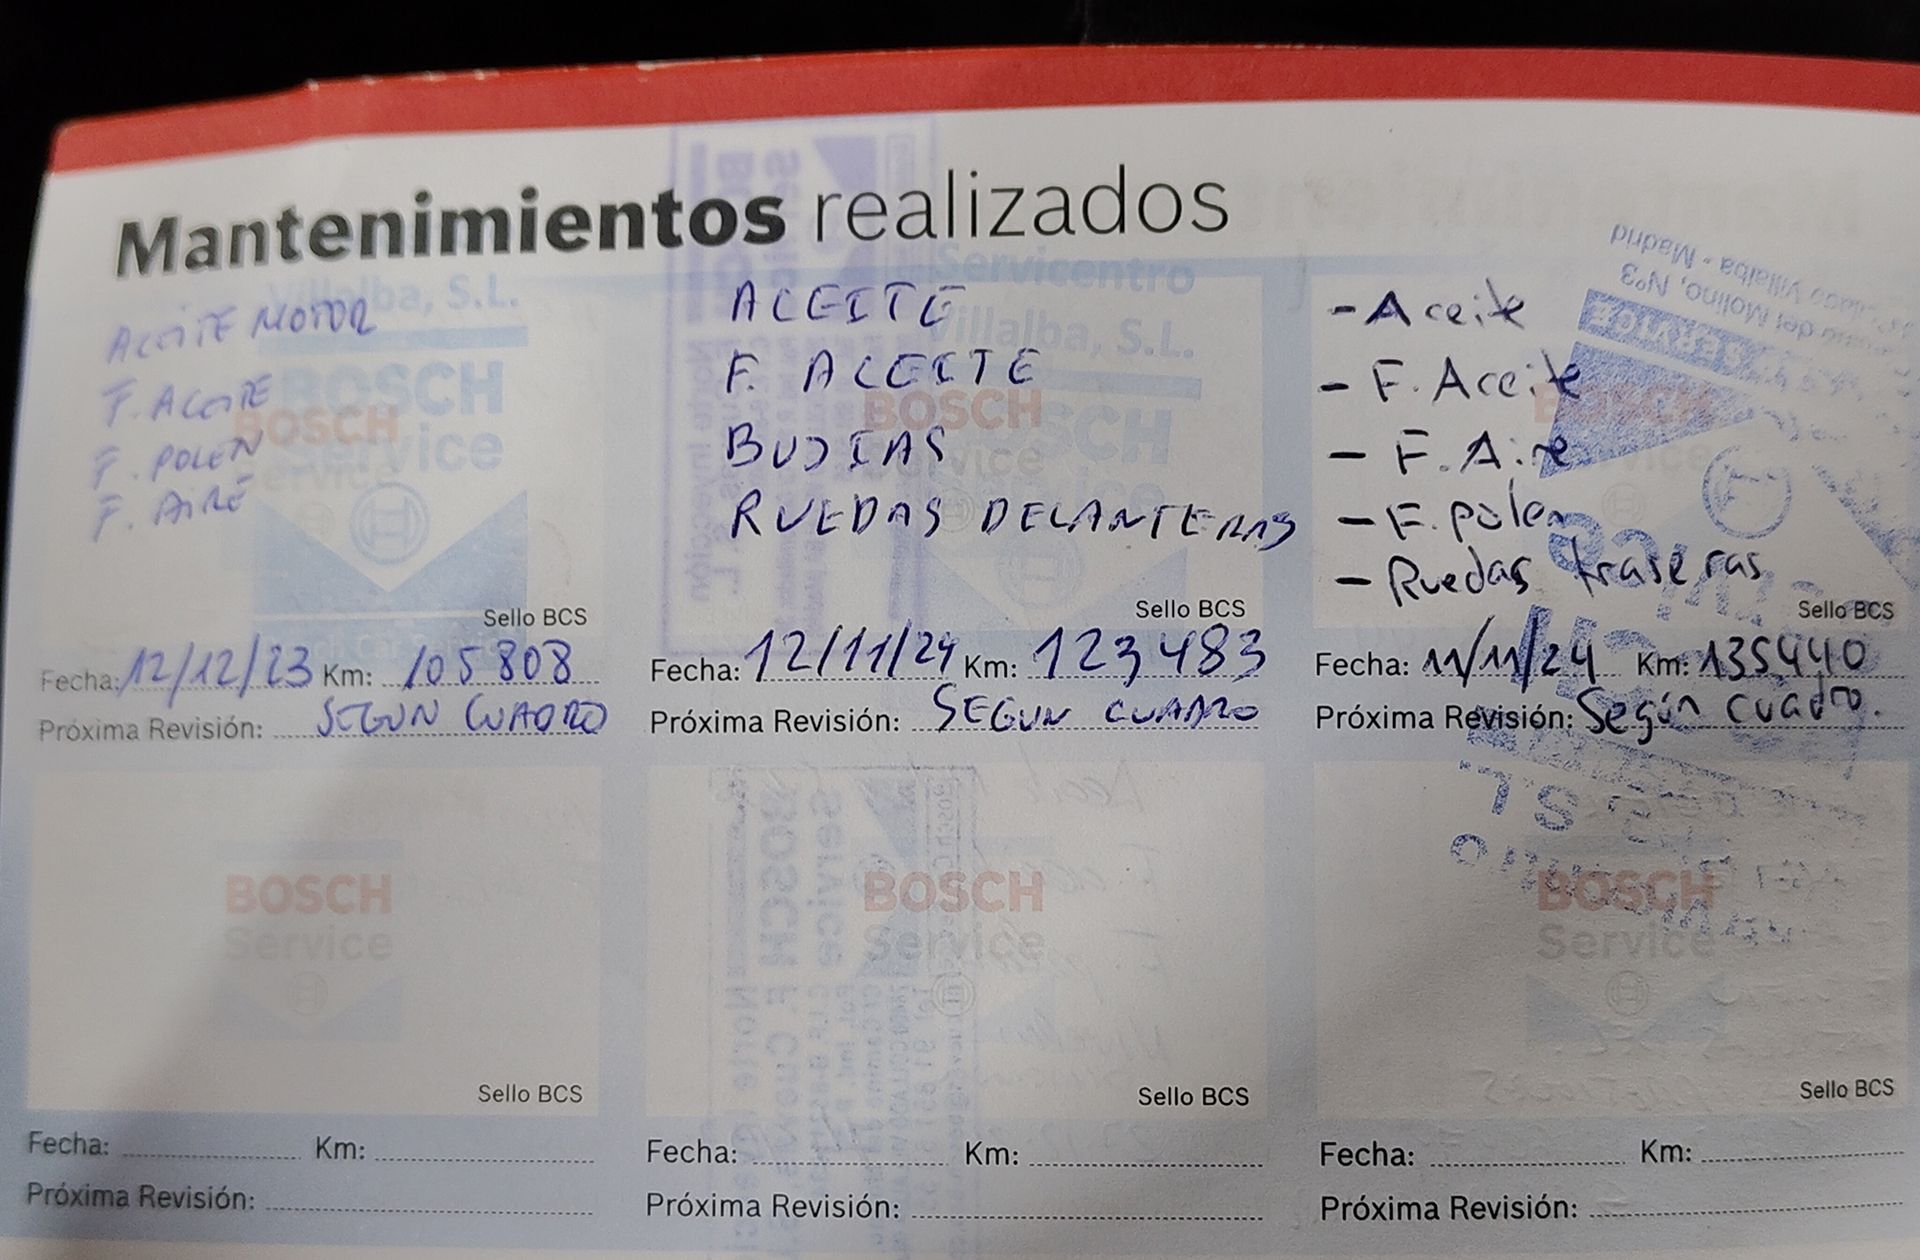 Mantenimientos realizados
ACEITE MOTOR
F. ACEITE
F. POLEN
F. AIRE
Villalba, S.L.
BOSCH
Service
BOSCH
Service
Sello BCS
Fecha: 12/12/23 Km: 105808
Próxima Revisión: SEGUN CUADRO
ACEITE
F. ACEITE
BUJIAS
RUEDAS DELANTERAS
Servicentro
Villalba, S.L.
BOSCH
Sello BCS
Fecha: 12/11/24 Km: 123483
Próxima Revisión: SEGUN CUADRO
- Aceite
- F. Aceite
- F. Aire
- F. polen
- Ruedas traseras
BOSCH
Sello BCS
Fecha: 11/11/24 Km: 135440
Próxima Revisión: Según cuadro.
BOSCH
Service
Sello BCS
Fecha: Km:
Próxima Revisión:
BOSCH
Service
Sello BCS
Fecha: Km:
Próxima Revisión:
BOSCH
Service
Sello BCS
Fecha: Km:
Próxima Revisión: